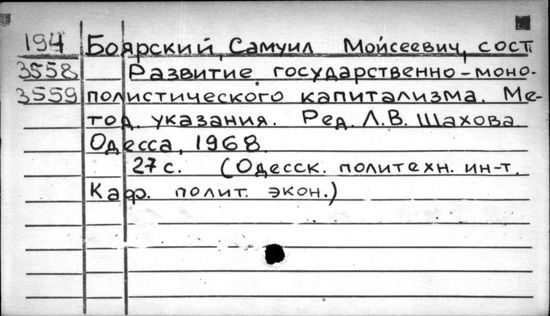 194 Боярский, Самуил Мойсеевич, сост.
3558 Развитие государственно-моно-
3559 полистического капитализма. Ме-
тод. указания. Ред. Л.В. Шахова
Одесса, 1968.
27 с. (Одесск. политехн. ин-т.
Каф. полит. экон.)